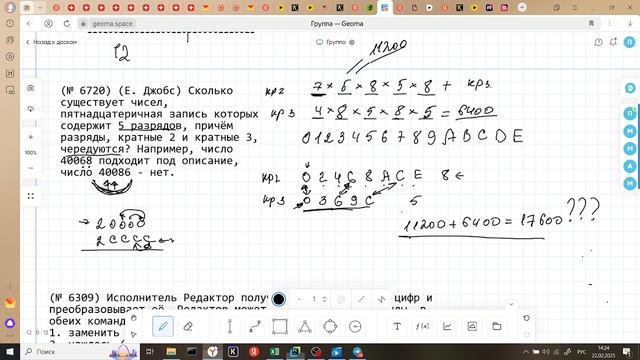 geoma.space
Группа — Geoma
Назад к доскам
Группа
12
11200
(№ 6720) (Е. Джобс) Сколько
существует чисел,
пятнадцатеричная запись которых
содержит 5 разрядов, причём
разряды, кратные 2 и кратные 3,
чередуются? Например, число
40068 подходит под описание,
число 40086 - нет.
кр2 7 × 5 × 8 × 5 × 8 + кр3
кр3 4 × 8 × 5 × 8 × 5 = 6400
0 1 2 3 4 5 6 7 8 9 A B C D E
кр2 0 2 4 6 8 A C E 8 ←
кр3 0 3 6 9 C 5
→ 2 0 0 0 0
2 C C C C
11200 + 6400 = 17600 ???
100%
(№ 6309) Исполнитель Редактор
цифр и
преобразовывает её. Редактор может
обеих
1. заменить
1
T
f(x)
РУС
14:24
22.02.2025